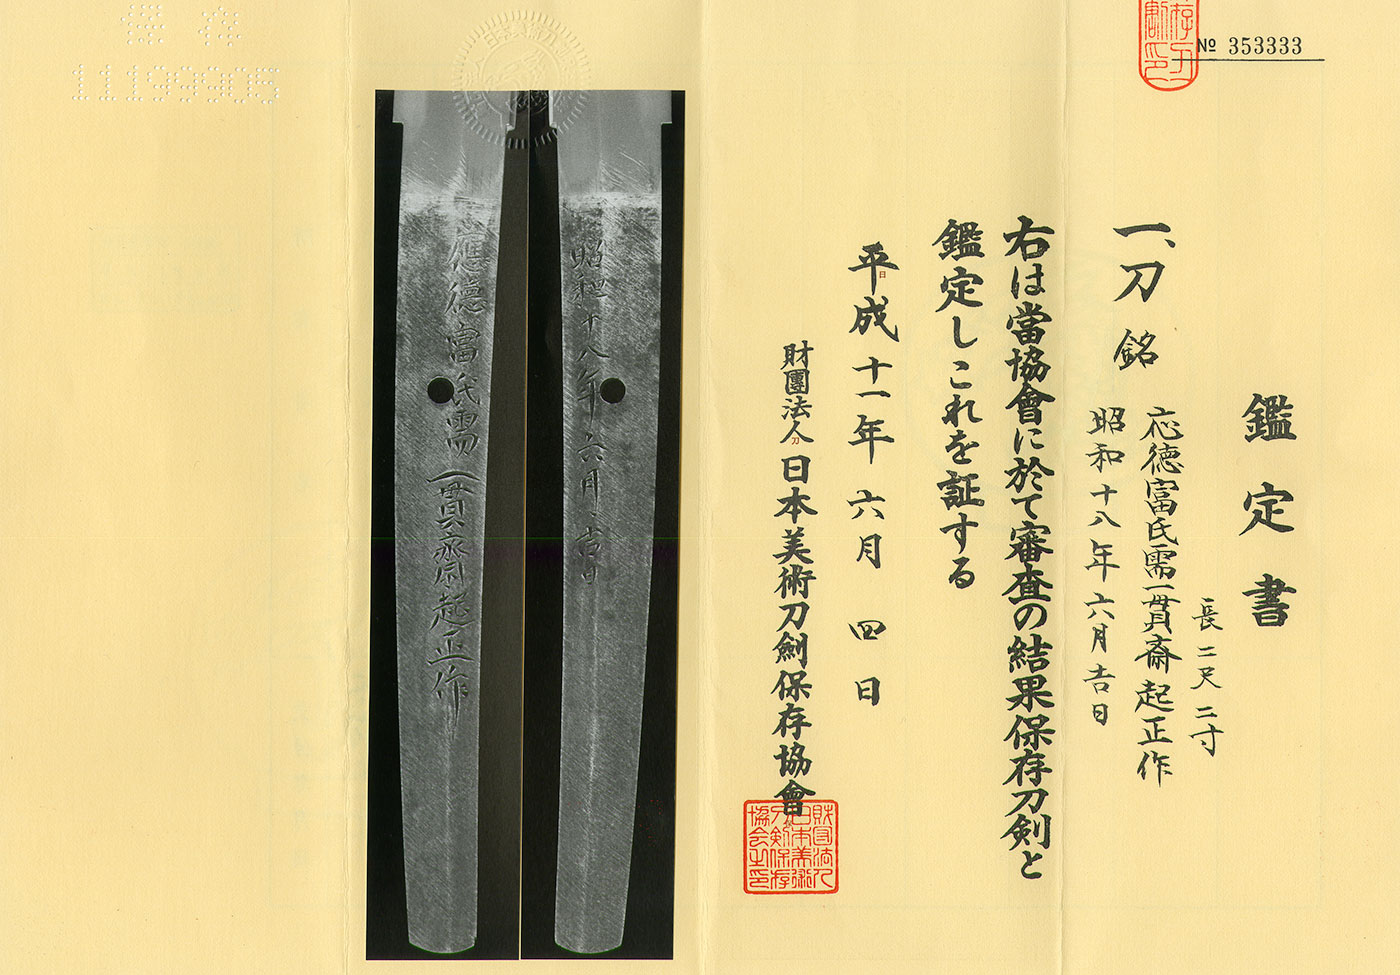 № 353333
鑑定書
一、刀 銘
長二尺二寸
応徳富氏需一貫斎起正作
昭和十八年六月吉日
右は當協會に於て審査の結果保存刀剣と
鑑定しこれを証する
平成十一年六月四日
財團法人日本美術刀劍保存協會
財団法人
日本美術
刀剣保存
協会之印
昭和十八年六月吉日
應徳富氏需一貫斎起正作
保存
11199905